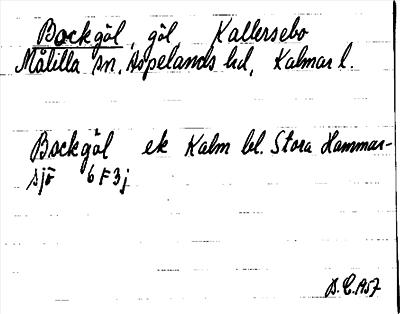 Bockgöl, göl Kallersebo
Målilla sn, Aspelands hd, Kalmar l.
Bockgöl ek Kalm bl. Stora Hammar-
sjö 6F3j